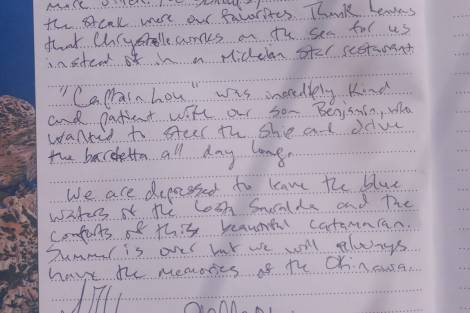 the steak were our favorites. Thank heavens
that Chrystelle works on the sea for us
instead of in a Michelin star restaurant
"Captain Lou" was incredibly kind
and patient with our son Benjamin, who
wanted to steer the ship and drive
the barcetta all day long.
We are depressed to leave the blue
waters of the Costa Smeralda and the
comforts of this beautiful catamaran.
Summer is over but we will always
have the memories of the Okinawa.